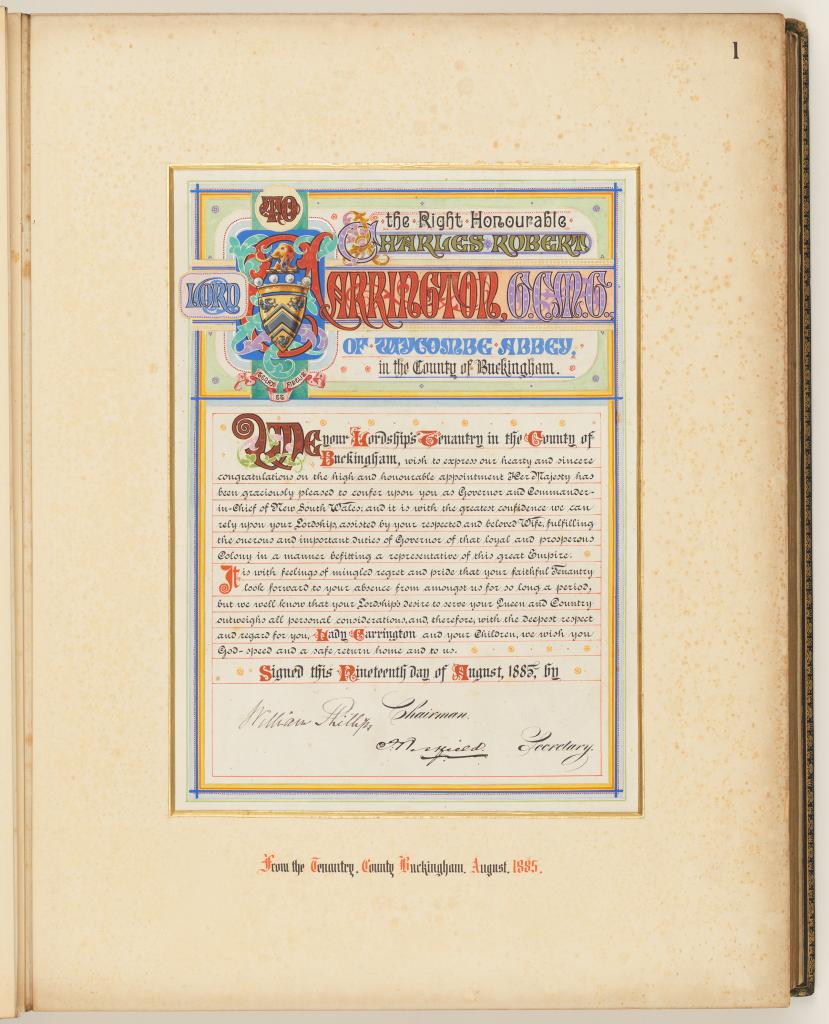 1
TO
the Right Honourable
CHARLES ROBERT
LORD CARRINGTON, G.C.M.G.,
OF WYCOMBE ABBEY,
in the County of Buckingham.
We your Lordship's Tenantry in the County of
Buckingham, wish to express our hearty and sincere
congratulations on the high and honourable appointment Her Majesty has
been graciously pleased to confer upon you as Governor and Commander-
in-Chief of New South Wales; and it is with the greatest confidence we can
rely upon your Lordship, assisted by your respected and beloved Wife, fulfilling
the onerous and important duties of Governor of that loyal and prosperous
Colony in a manner befitting a representative of this great Empire.
It is with feelings of mingled regret and pride that your faithful Tenantry
look forward to your absence from amongst us for so long a period,
but we well know that your Lordship's desire to serve your Queen and Country
outweighs all personal considerations, and, therefore, with the deepest respect
and regard for you, Lady Carrington and your Children, we wish you
God-speed and a safe return home and to us.
Signed this Nineteenth day of August, 1885, by
William Phillips Chairman.
Secretary.
From the Tenantry, County Buckingham. August, 1885.